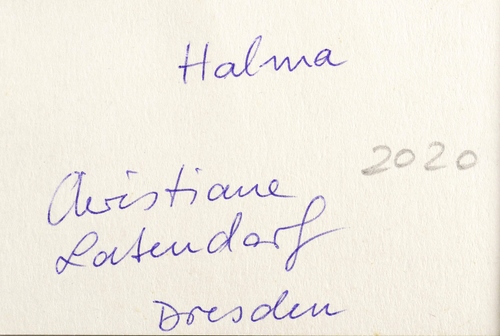 Halma
2020
Christiane
Latendorf
Dresden